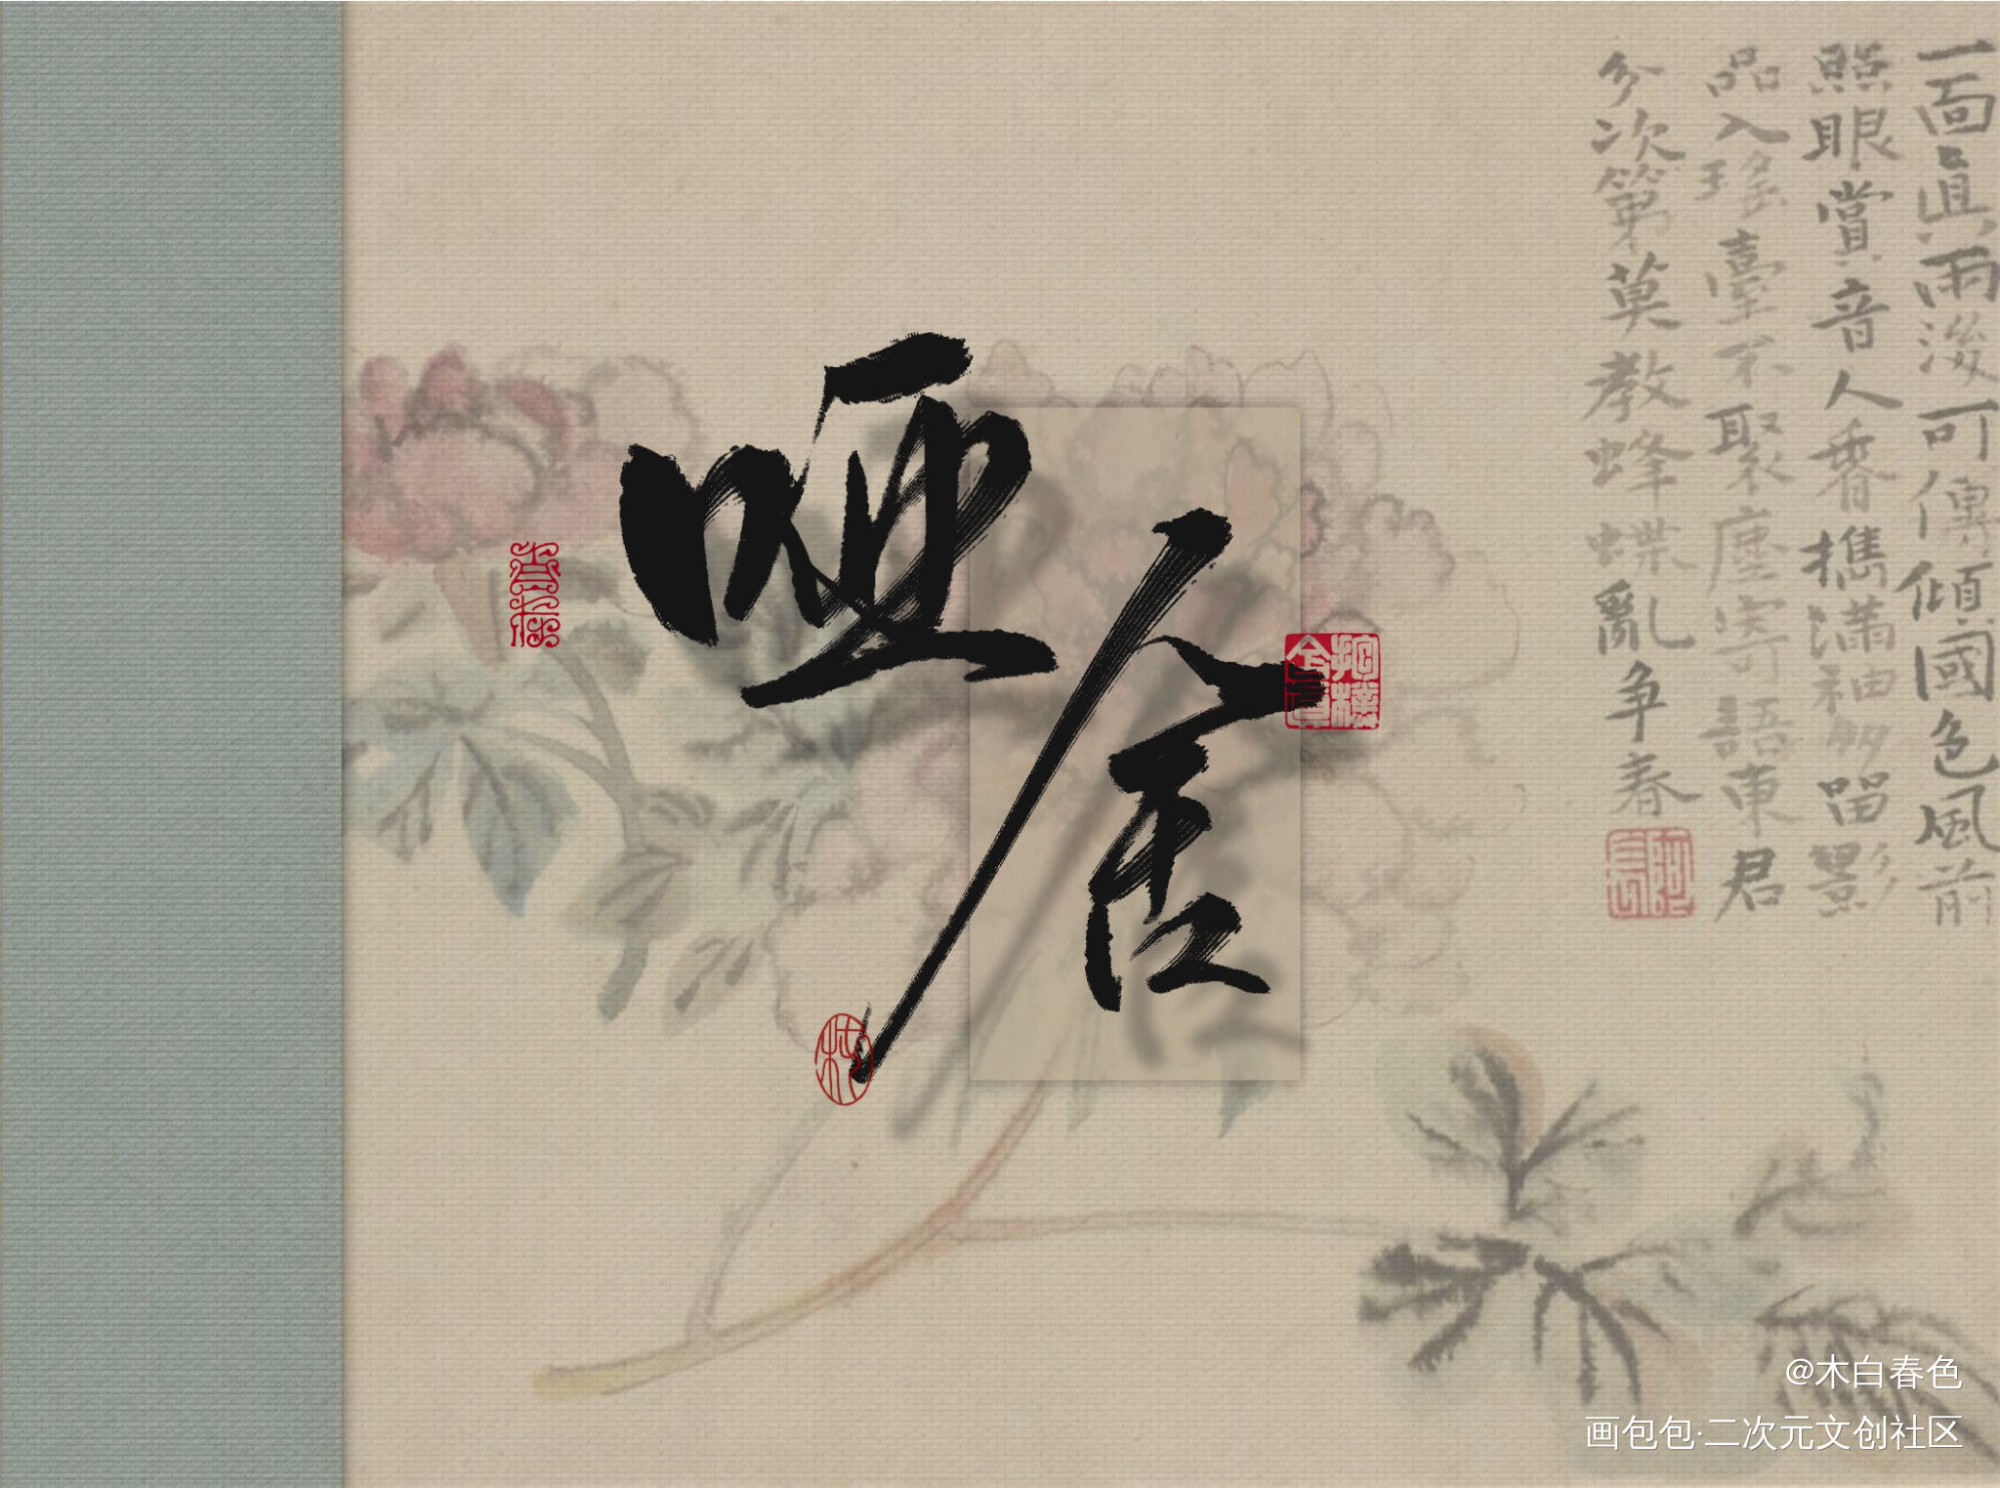 哑舍
一面眞雨後可傳傾國色風前
照眼賞音人香攜滿袖多留影
品入瑤臺不聚塵寄語東君
分次第莫教蜂蝶亂争春
@木白春色
画包包·二次元文创社区